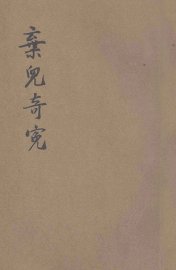 棄兒奇冤